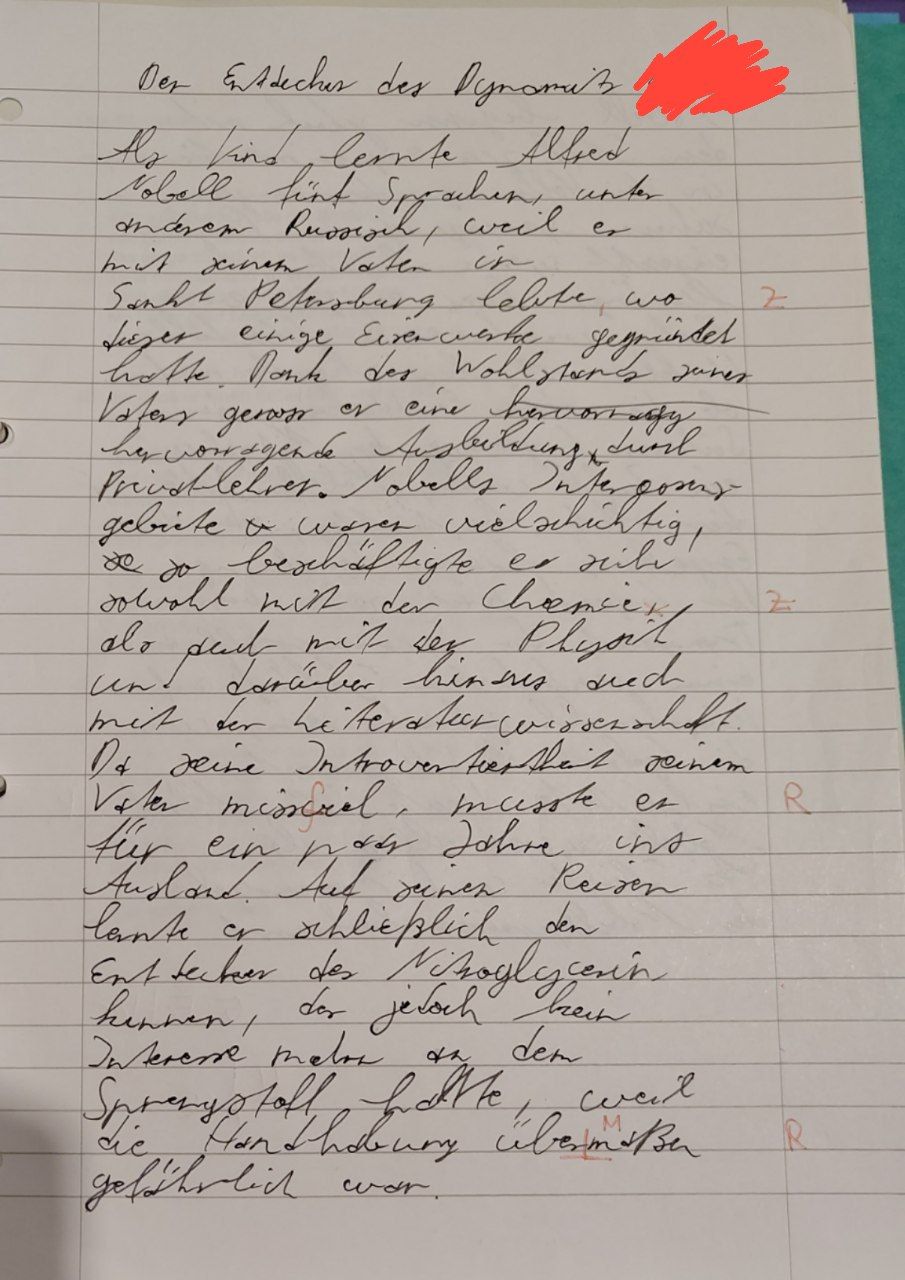 Der Entdecker des Dynamits
Als Kind lernte Alfred
Nobell fünf Sprachen, unter
anderem Russisch, weil er
mit seinem Vater in
Sankt Petersburg lebte, wo Z
dieser einige Eisenwerke gegründet
hatte. Dank des Wohlstands seines
Vaters genoss er eine
hervorragende Ausbildung durch
Privatlehrer. Nobells Interessens-
gebiete waren vielschichtig,
so beschäftigte er sich
sowohl mit der Chemie, Z
als auch mit der Physik
und darüber hinaus auch
mit der Literaturwissenschaft.
Da seine Introvertiertheit seinem
Vater missfiel, musste er R
für ein paar Jahre ins
Ausland. Auf seinen Reisen
lernte er schließlich den
Entdecker des Nitroglycerin
kennen, der jedoch kein
Interesse mehr an dem
Sprengstoff hatte, weil
die Handhabung übermaßen R
gefährlich war.